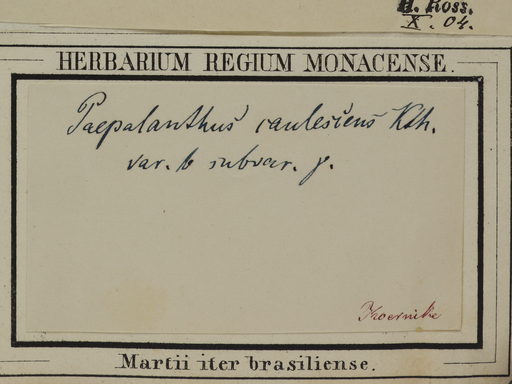 H. Ross.
X. 04.
HERBARIUM REGIUM MONACENSE.
Paepalanthus caulescens Kth.
var. b subvar. γ.
Koernike
Martii iter brasiliense.